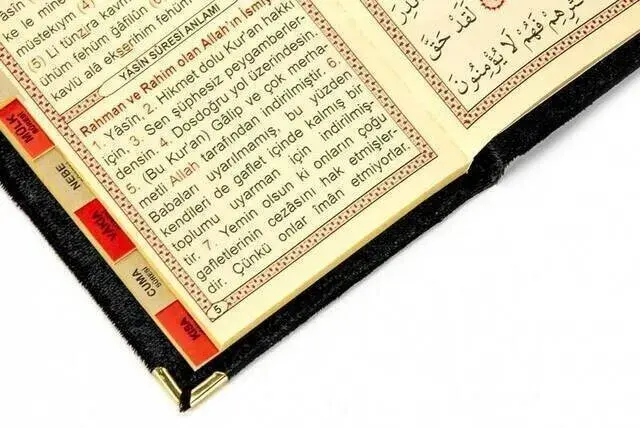 müstekıym (4)
(5) Li tünzira kavmen
ühüm fehüm ğâfilûn
kavlü alâ ekserihim fehüm
YASİN SÛRESİ ANLAMI
Rahman ve Rahim olan Allah'ın İsmiy
1. Yâsîn, 2. Hikmet dolu Kur'an hakkı
için, 3. Sen şüphesiz peygamberler-
densin. 4. Dosdoğru yol üzerindesin.
5. (Bu Kur'an) Gâlip ve çok merha-
metli Allah tarafından indirilmiştir. 6.
Babaları uyarılmamış, bu yüzden
kendileri de gaflet içinde kalmış bir
toplumu uyarman için indirilmiş-
tir. 7. Yemin olsun ki onların çoğu
gafletlerinin cezâsını hak etmişler-
dir. Çünkü onlar îmân etmiyorlar.
5
لَقَدْ حَقَّ
فَهُمْ لَا يُؤْمِنُونَ
MÜLK
SÛRESİ
NEBE
VAKIA
CUMA
SÛRESİ
KISA